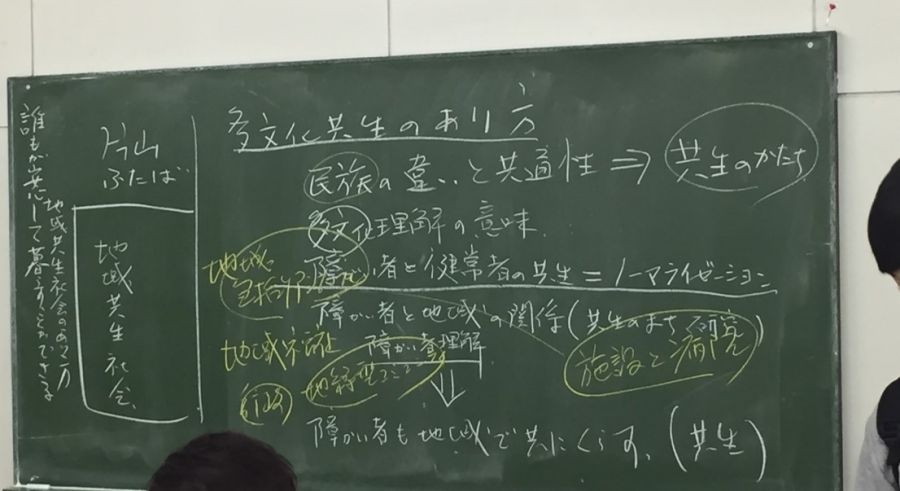 誰もが共に暮すことができる
地域共生社会のあり方
片山
ふたば
地域共生社会
多文化共生のあり方
民族の違いと共通性 ⇒ 共生のかたち
多文化理解の意味
障がい者と健常者の共生=ノーマライゼーション
障がい者と地域の関係(共生のまち
障がい者理解
⇓
障がい者も地域で共にくらす、(共生)
地域
包括
地域
地縁型
施設と病院